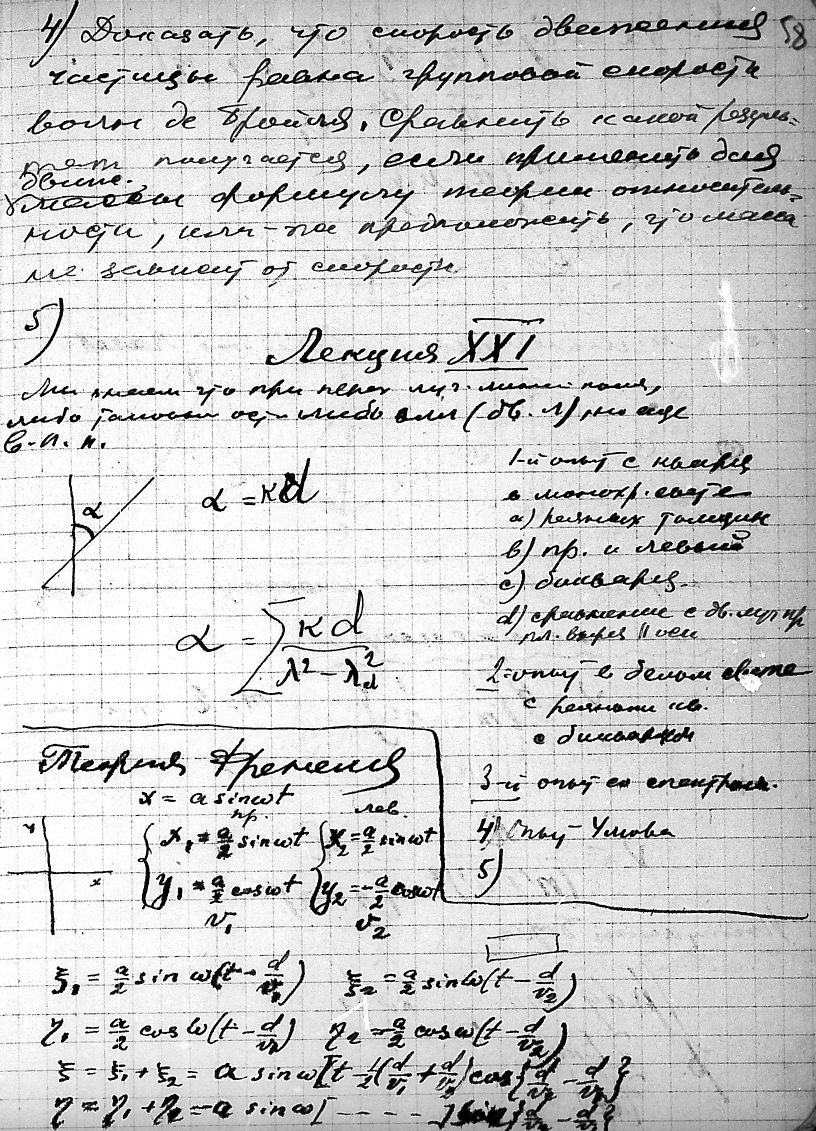 58
4) Доказать, что скорость движения
частицы равна групповой скорости
волн де Бройля. Сравнить какой резуль-
тат получается, если применить для
движ.
массы формулу теории относитель-
ности, или-же предположить, что масса
не зависит от скорости
5)
Лекция XXI
Мы знаем что при
либо либо (дв. л) но еще
в. п. п.
α
α = кd
α = Σ кd / (λ² − λ²d)
1-й опыт с кварц
в монохр. свете
а) разных толщин
в) пр. и левый
с) бикварц
d) сравнение с дв. луч пр
пл. вырез || оси
2-опыт в белом свете
с разными кв.
с бикварцем
3-й опыт со спектром.
4) Опыт Умова
5)
Теория Френеля
x = a sin ωt
пр. лев.
y x
x₁ = a/2 sin ωt x₂ = a/2 sin ωt
y₁ = a/2 cos ωt y₂ = −a/2 cos ωt
v₁ v₂
ξ₁ = a/2 sin ω(t − d/v₁) ξ₂ = a/2 sin ω(t − d/v₂)
η₁ = a/2 cos ω(t − d/v₁) η₂ = −a/2 cos ω(t − d/v₂)
ξ = ξ₁ + ξ₂ = a sin ω[t − 1/2(d/v₁ + d/v₂) cos{d/v₂ − d/v₁}
η = η₁ + η₂ = −a sin ω[ - - - - ] sin{d/v₂ − d/v₁}